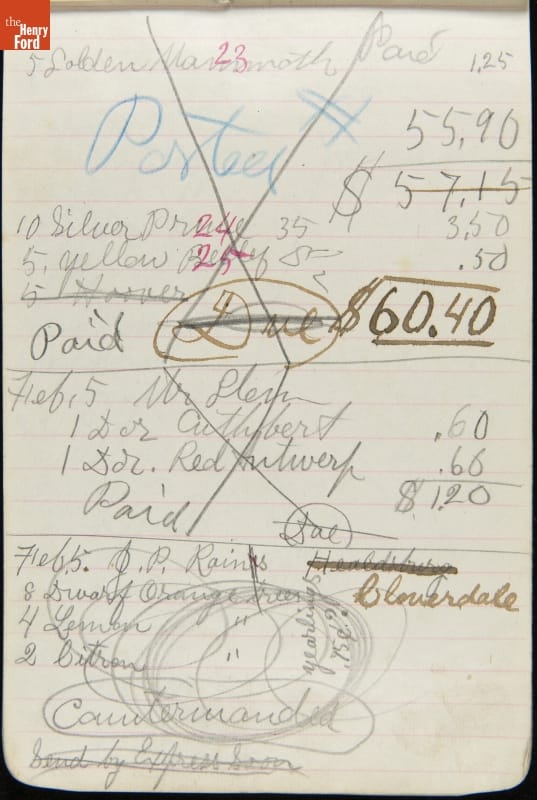 the Henry Ford
5 Golden Mammoth 23 Paid 1.25
Posted
55.90
$ 57.15
10 Silver Prune 24 35 3.50
5, Yellow 25 .50
5 Hoover
Paid Due $60.40
Feb, 5 Mr Stein
1 Doz Cuthbert .60
1 Doz. Red Antwerp .60
Paid $1.20
Due
Feb 5. J. P. Rains Healdsburg
8 Dwarf Orange Trees Cloverdale
4 Lemon "
2 Citron "
yearlings
Countermanded
Send by Express Soon